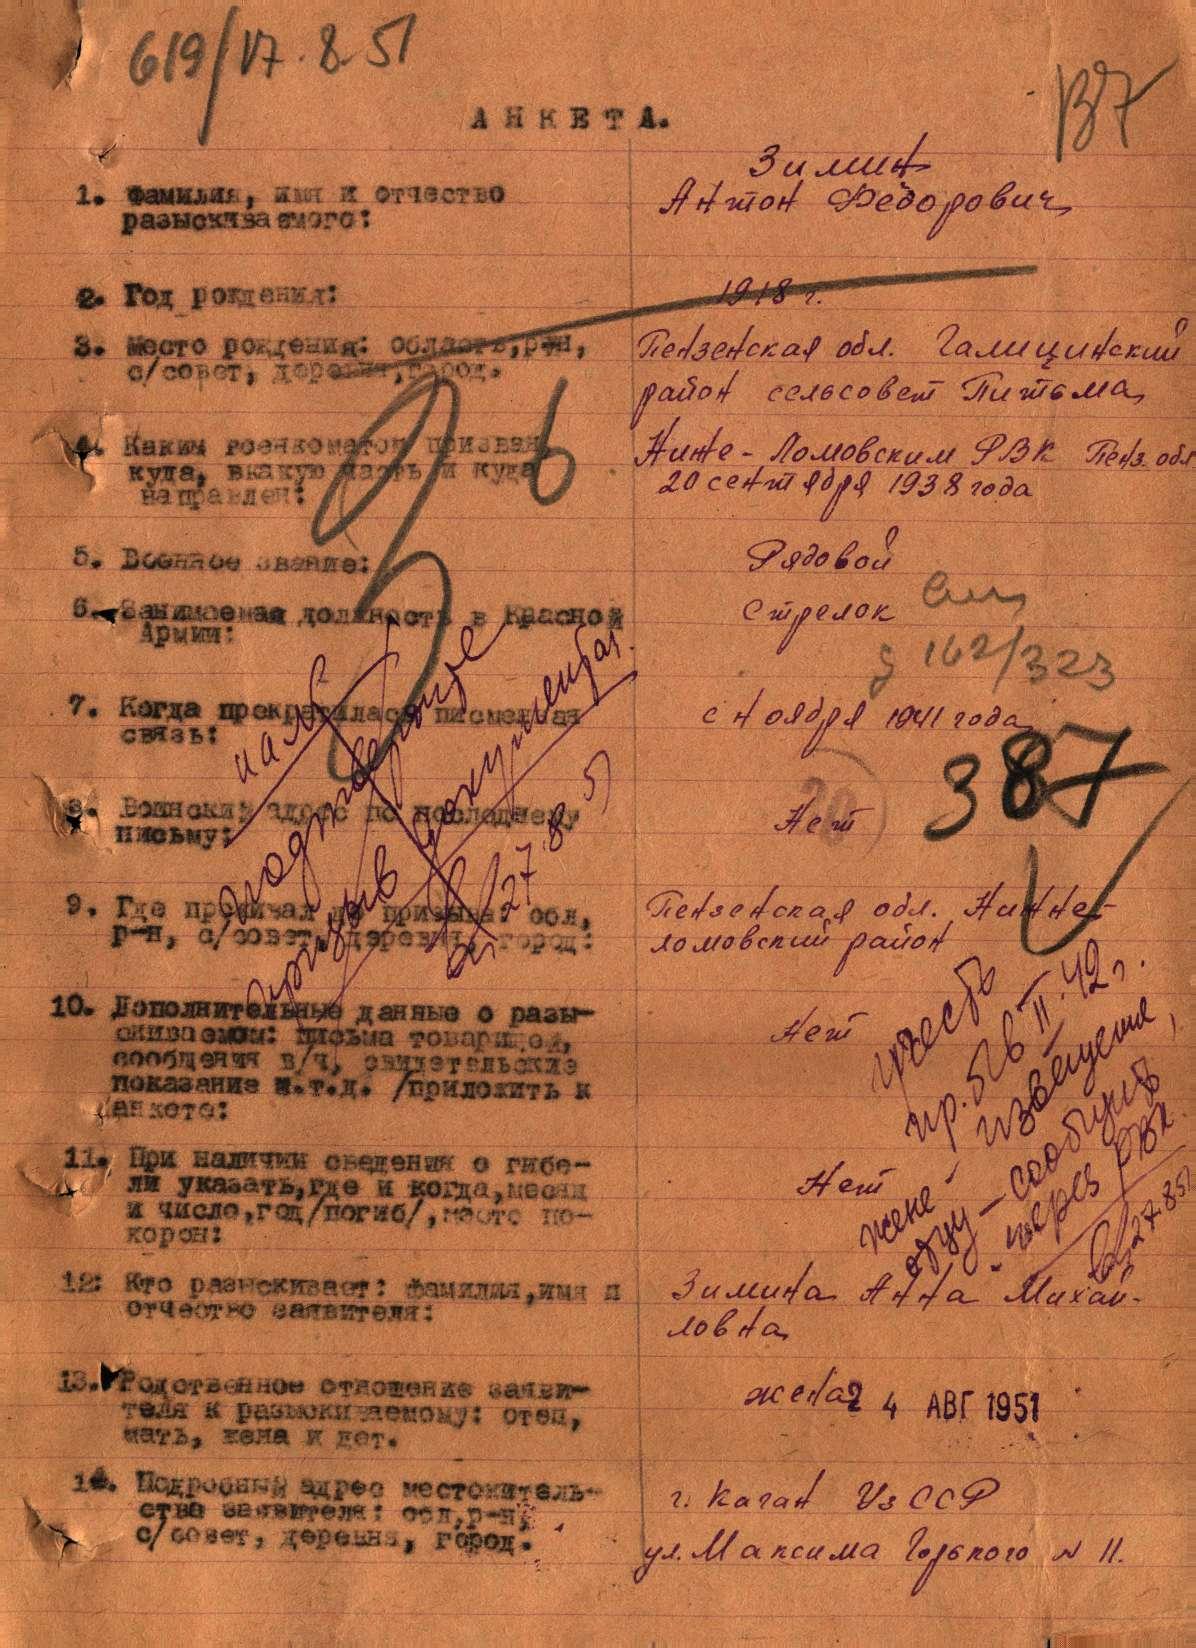 619/17.8.51
В7
АНКЕТА.
1. Фамилия, имя и отчество
разыскиваемого:
Зимин
Антон Фёдорович
2. Год рождения:
1918 г.
3. Место рождения: область, р-н,
с/совет, деревня, город.
Пензенская обл. Галицинский
район сельсовет Питьма
4. Каким военкоматом призван
куда, вкакую часть и куда
направлен:
Ниже-Ломовским РВК Пенз. обл
20 сентября 1938 года
5. Военное звание:
Рядовой
6. Занимаемая должность в Красной
Армии:
Стрелок
162/323
7. Когда прекратилась писменная
связь:
с ноября 1941 года
387
8. Воинский адрес по последнему
письму:
Нет
подтвержде
призыв документал.
27.8.51
9. Где проживал до призыва: обл,
р-н, с/совет, деревня, город:
Пензенская обл. Нижне-
ломовский район
10. Дополнительные данные о разы-
скиваемом: письма товарищей,
сообщения в/ч, свидетельские
показание и.т.д. /приложить к
анкете:
Нет
учесть
пр. б/в II.42 г.
извещение
жене -
отцу - сообщить
через РВК
27.8.51
11. При наличии сведения о гибе-
ли указать, где и когда, месяц
и число, год/погиб/, место по-
корон:
Нет
12: Кто разыскивает: фамилия, имя и
отчество заявителя:
Зимина Анна Михай-
ловна
13. Родственное отношение заяви-
теля к разыскиваемому: отец,
мать, жена и дет.
жена
24 АВГ 1951
14. Подробный адрес местожитель-
ства заявителя: обл, р-н,
с/совет, деревня, город.
г. Каган УзССР
ул. Максима Горького N 11.